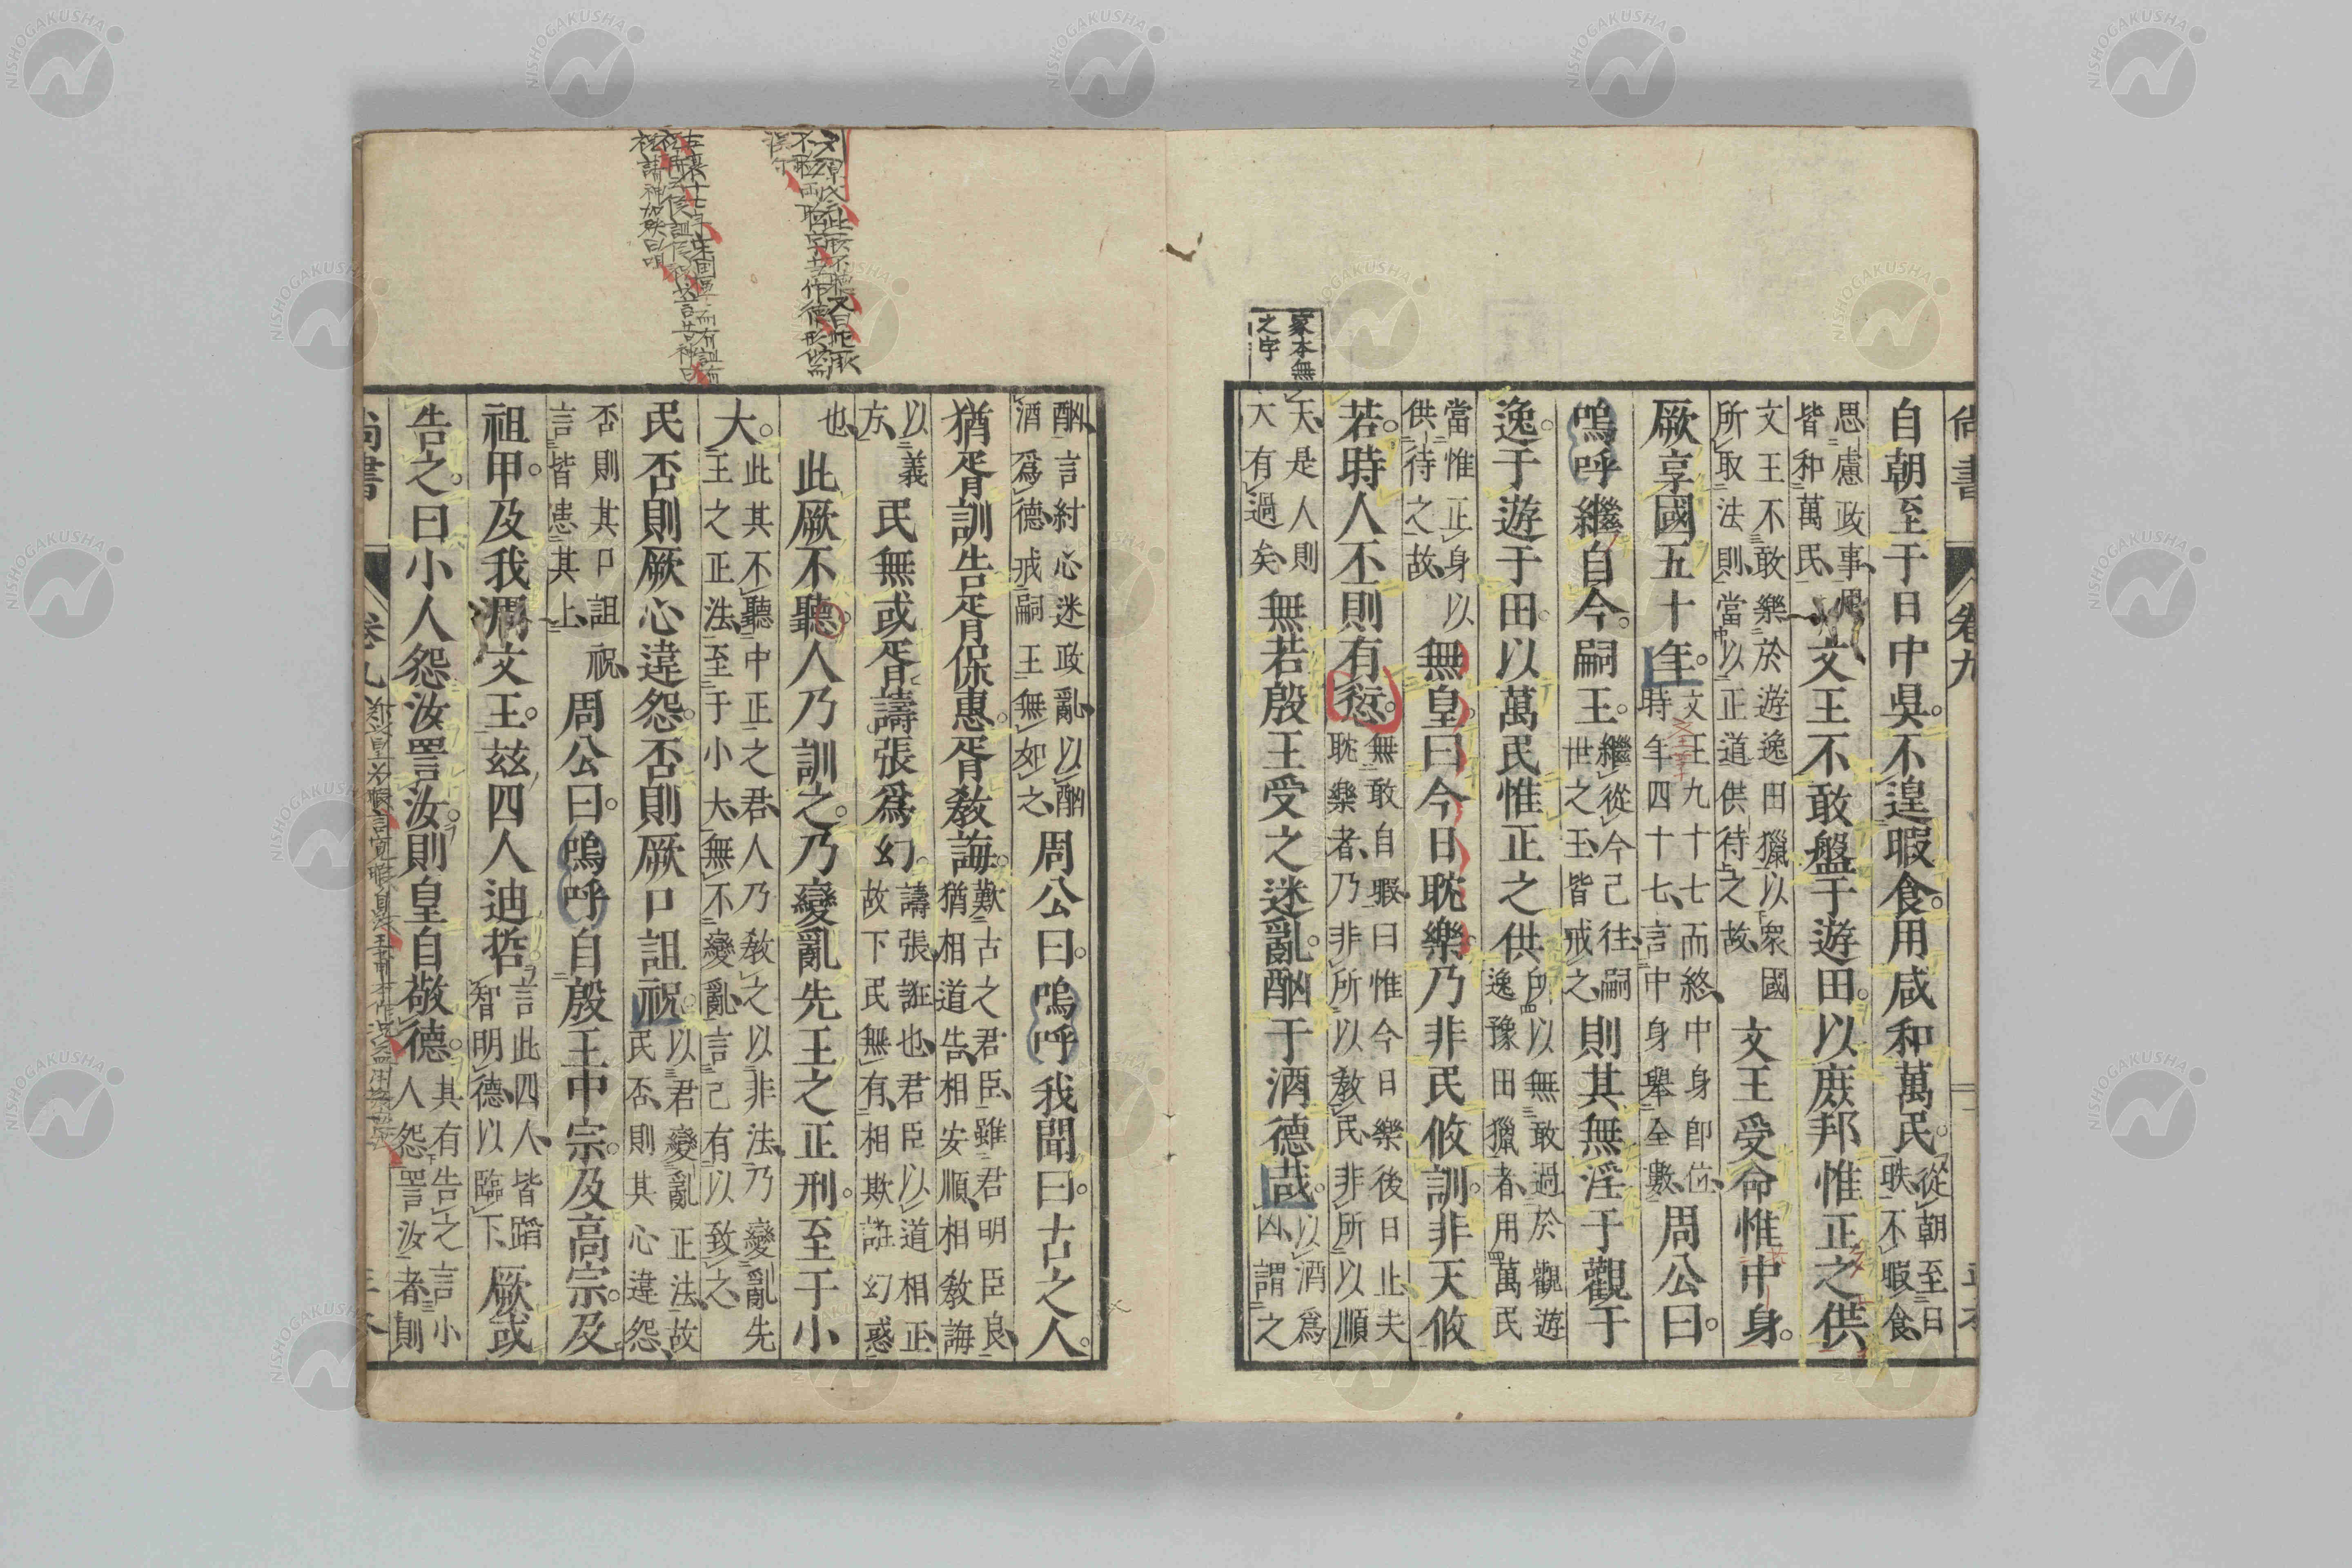 尚書 卷九
自朝至于日中吳。不遑暇食。用咸和萬民。從朝至日昳不暇食、
思慮政事用皆和萬民、文王不敢盤于遊田。以庶邦惟正之供
文王不敢樂於遊逸田獵以衆國所取法則、當以正道供待之故、文王受命惟中身。
厥享國五十年。文王九十七而終、中身卽位、時年四十七、言中身擧全數、周公曰。
嗚呼繼自今。嗣王。繼從今已往、嗣世之王、皆戒之、則其無淫于觀于
逸。于遊于田。以萬民惟正之供所以無敢過於觀遊逸豫田獵者、用萬民
當惟正身以供待之故、無皇。曰今日耽樂。乃非民攸訓。非天攸
若。時人丕則有愆。無敢自暇、曰惟今日樂後日止、夫耽樂者、乃非所以敎民、非所以順
家本無之字
天、是人則大有過矣、無若殷王受之迷亂。酗于酒德哉。以酒爲凶、謂之
酗、言紂心迷政亂、以酗酒爲德、戒嗣王無如之、周公曰。嗚呼我聞曰。古之人。
猶胥訓告胥保惠。胥敎誨。歎古之君臣、雖君明臣良、猶相道告、相安順、相敎誨
以義方、民無或胥。譸張爲幻。譸張、誑也、君臣以道相正、故下民無有相欺誑幻惑
也、此厥不聽。人乃訓之。乃變亂先王之正刑。至于小
大。此其不聽中正之君、人乃敎之以非法、乃變亂先王之正法、至于小大、無不變亂、言己有以致之、
民否則厥心違怨。否則厥口詛祝。以君變亂正法、故民否、則其心違怨、
否則其口詛祝、言皆患其上、周公曰。嗚呼自殷王中宗。及高宗。及
祖甲。及我周文王。茲四人迪哲。言此四人、皆蹈智明德、以臨下、厥或
告之。曰小人怨汝詈汝。則皇自敬德。其有告之言小人怨詈汝者、則
尚書 卷九
NISHOGAKUSHA